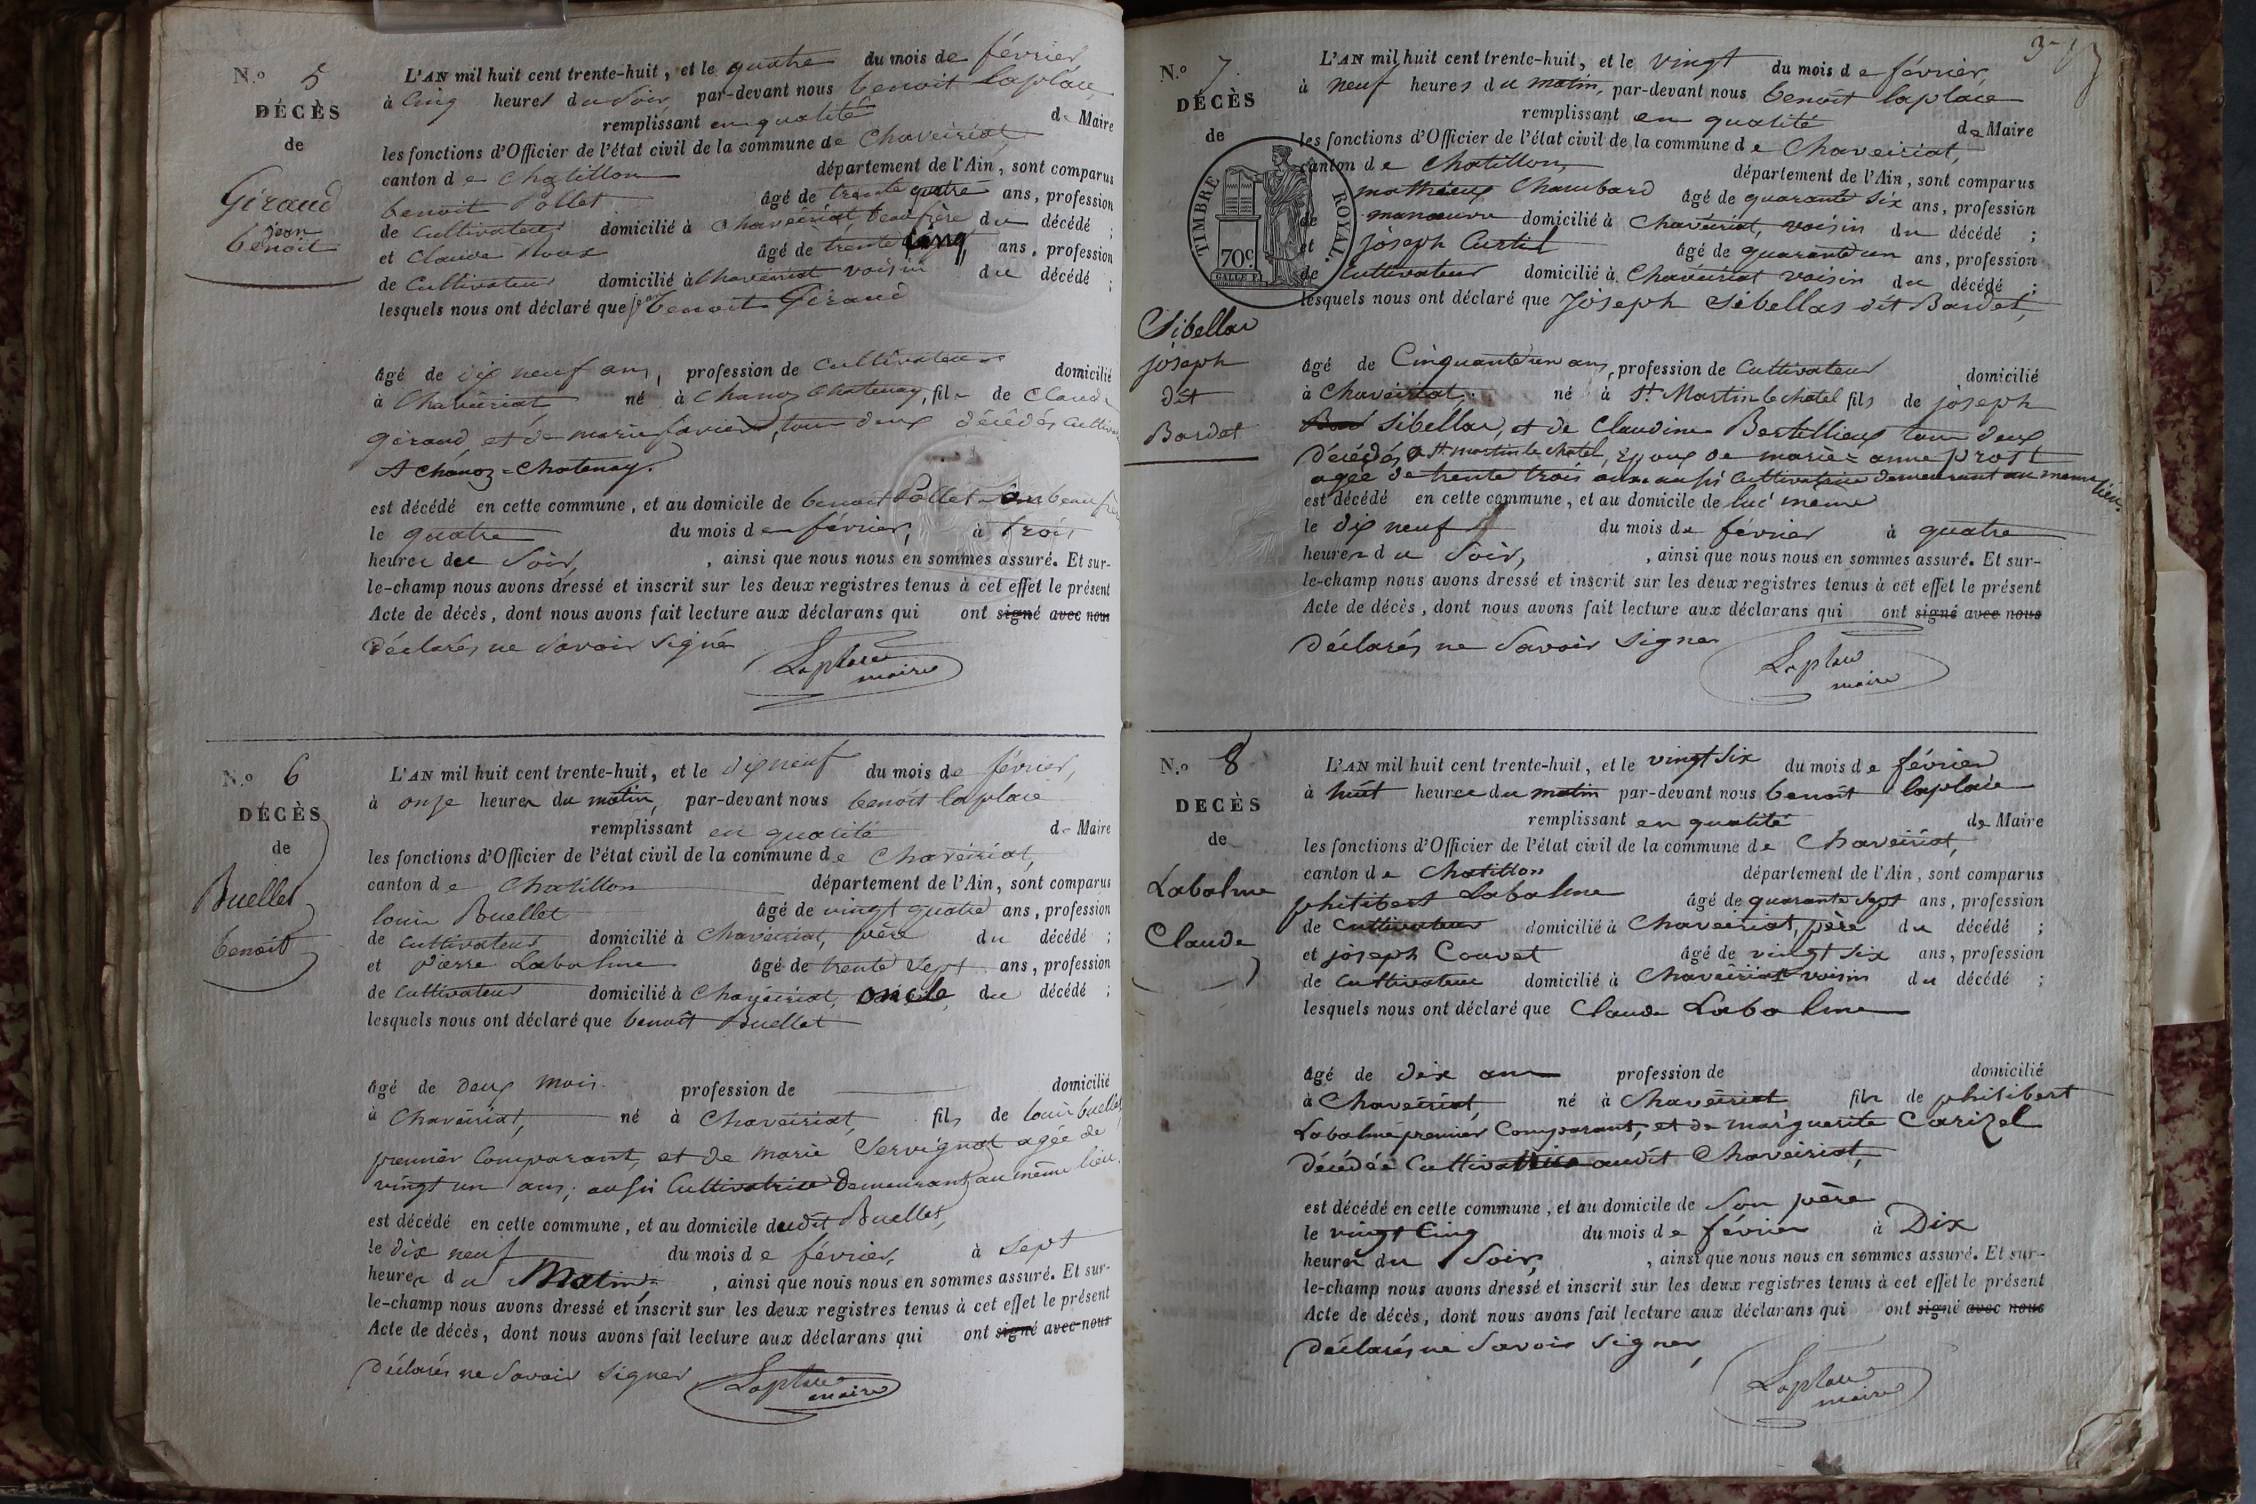 N.o 5
DÉCÈS
de
Giraud
jean
benoit
L'AN mil huit cent trente-huit, et le quatre du mois de février,
à cinq heures du soir, par-devant nous benoit laplace
remplissant en qualité de Maire
les fonctions d'Officier de l'état civil de la commune de Chaveiriat,
canton de Chatillon département de l'Ain, sont comparus
benoit Pollet âgé de trente quatre ans, profession
de Cultivateur domicilié à Chaveiriat, beau frère du décédé ;
et Claude Roux âgé de trente cinq ans, profession
de Cultivateur domicilié à Chaveiriat voisin du décédé ;
lesquels nous ont déclaré que jean benoit Giraud
âgé de dix neuf ans, profession de Cultivateur domicilié
à Chaveiriat né à Chanoz Chatenay, fils de Claude
Giraud, et de marie favier, tous deux décédés Cultiv
A Chanoz=Chatenay.
est décédé en cette commune, et au domicile de benoit Pollet son beau frère
le quatre du mois de février, à trois
heures du Soir, , ainsi que nous nous en sommes assuré. Et sur-
le-champ nous avons dressé et inscrit sur les deux registres tenus à cet effet le présent
Acte de décès, dont nous avons fait lecture aux déclarans qui ont signé avec nous
Déclarés ne Savoir Signé
Laplace
maire
N.o 6
DÉCÈS
de
Buellet
benoit
L'AN mil huit cent trente-huit, et le dix neuf du mois de février,
à onze heures du matin, par-devant nous benoit laplace
remplissant en qualité de Maire
les fonctions d'Officier de l'état civil de la commune de Chaveiriat,
canton de Chatillon département de l'Ain, sont comparus
louis Buellet âgé de vingt quatre ans, profession
de Cultivateur domicilié à Chaveiriat, père du décédé ;
et Pierre Labalme âgé de trente sept ans, profession
de Cultivateur domicilié à Chaveiriat, oncle du décédé ;
lesquels nous ont déclaré que benoît Buellet
âgé de deux mois profession de domicilié
à Chaveiriat, né à Chaveiriat, fils de louis buellet
premier Comparant, et de marie Servignat agée de
vingt un ans, aussi Cultivatrice Demeurant au même lieu.
est décédé en cette commune, et au domicile dudit Buellet,
le dix neuf du mois de février, à sept
heures du Matin, , ainsi que nous nous en sommes assuré. Et sur-
le-champ nous avons dressé et inscrit sur les deux registres tenus à cet effet le présent
Acte de décès, dont nous avons fait lecture aux déclarans qui ont signé avec nous
Déclarés ne Savoir Signer
Laplace
maire
N.o 7.
DÉCÈS
de
TIMBRE ROYAL.
70c
Sibellas
joseph
dit
Bardet
L'AN mil huit cent trente-huit, et le vingt du mois de février,
à neuf heures du matin, par-devant nous benoit laplace
remplissant en qualité de Maire
les fonctions d'Officier de l'état civil de la commune de Chaveiriat,
canton de Chatillon, département de l'Ain, sont comparus
mathieux Chambard âgé de quarante six ans, profession
de manœuvre domicilié à Chaveiriat, voisin du décédé ;
et joseph Curtil âgé de quarante un ans, profession
de Cultivateur domicilié à Chaveiriat voisin du décédé ;
lesquels nous ont déclaré que Joseph Sibellas dit Bardet,
âgé de Cinquante un ans, profession de Cultivateur domicilié
à Chaveiriat, né à St. Martin le chatel fils de joseph
Sibellas, et de Claudine Bertillieux tous deux
Décédés, à St. martin le chatel, Epoux de marie=anne prost
agée de trente trois ans aussi Cultivatrice demeurant au meme lieu.
est décédé en cette commune, et au domicile de lui meme
le dix neuf du mois de février à quatre
heures du Soir, , ainsi que nous nous en sommes assuré. Et sur-
le-champ nous avons dressé et inscrit sur les deux registres tenus à cet effet le présent
Acte de décès, dont nous avons fait lecture aux déclarans qui ont signé avec nous
Déclarés ne Savoir Signer
Laplace
maire
N.o 8
DÉCÈS
de
Labalme
Claude
L'AN mil huit cent trente-huit, et le vingt six du mois de février
à huit heures du matin par-devant nous benoît laplace
remplissant en qualité de Maire
les fonctions d'Officier de l'état civil de la commune de Chaveiriat,
canton de Chatillon département de l'Ain, sont comparus
philibert Labalme âgé de quarante sept ans, profession
de Cultivateur domicilié à Chaveiriat, père du décédé ;
et joseph Couvet âgé de vingt six ans, profession
de Cultivateur domicilié à Chaveiriat voisin du décédé ;
lesquels nous ont déclaré que Claude Labalme
âgé de dix ans profession de domicilié
à Chaveiriat, né à Chaveiriat fils de philibert
Labalme premier Comparant, et de marguerite Carizel
décédée Cultivatrice audit Chaveiriat,
est décédé en cette commune, et au domicile de Son père
le vingt Cinq du mois de février à Dix
heures du Soir, , ainsi que nous nous en sommes assuré. Et sur-
le-champ nous avons dressé et inscrit sur les deux registres tenus à cet effet le présent
Acte de décès, dont nous avons fait lecture aux déclarans qui ont signé avec nous
Déclarés ne Savoir Signer,
Laplace
maire